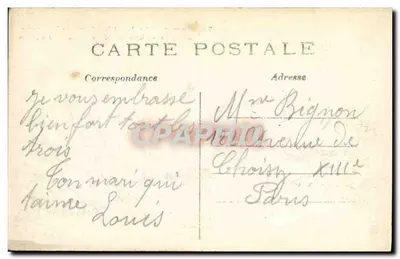 CARTE POSTALE
Correspondance
Adresse
je vous embrasse
bien fort tout les
trois
Ton mari qui
t'aime Louis
Mme Bignon
Avenue de
Choisy XIIIe
Paris
CPAPHIL